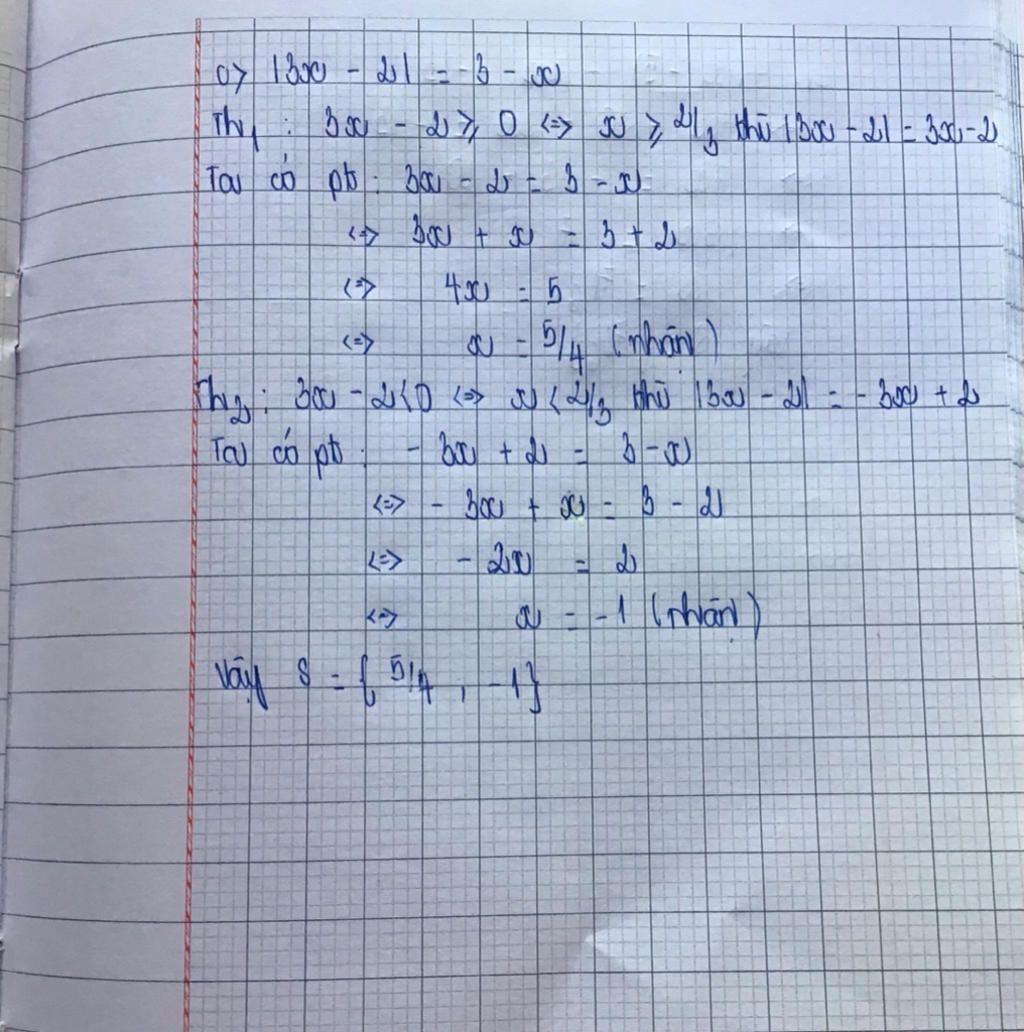 c> |3x - 2| = 3 - x
Th₁ : 3x - 2 ≥ 0 <=> x ≥ 2/3 thì |3x - 2| = 3x - 2
Ta có pt : 3x - 2 = 3 - x
<=> 3x + x = 3 + 2
<=> 4x = 5
<=> x = 5/4 (nhận)
Th₂ : 3x - 2 < 0 <=> x < 2/3 thì |3x - 2| = - 3x + 2
Ta có pt : - 3x + 2 = 3 - x
<=> - 3x + x = 3 - 2
<=> - 2x = 2
<=> x = -1 (nhận)
Vậy S = { 5/4 , -1}